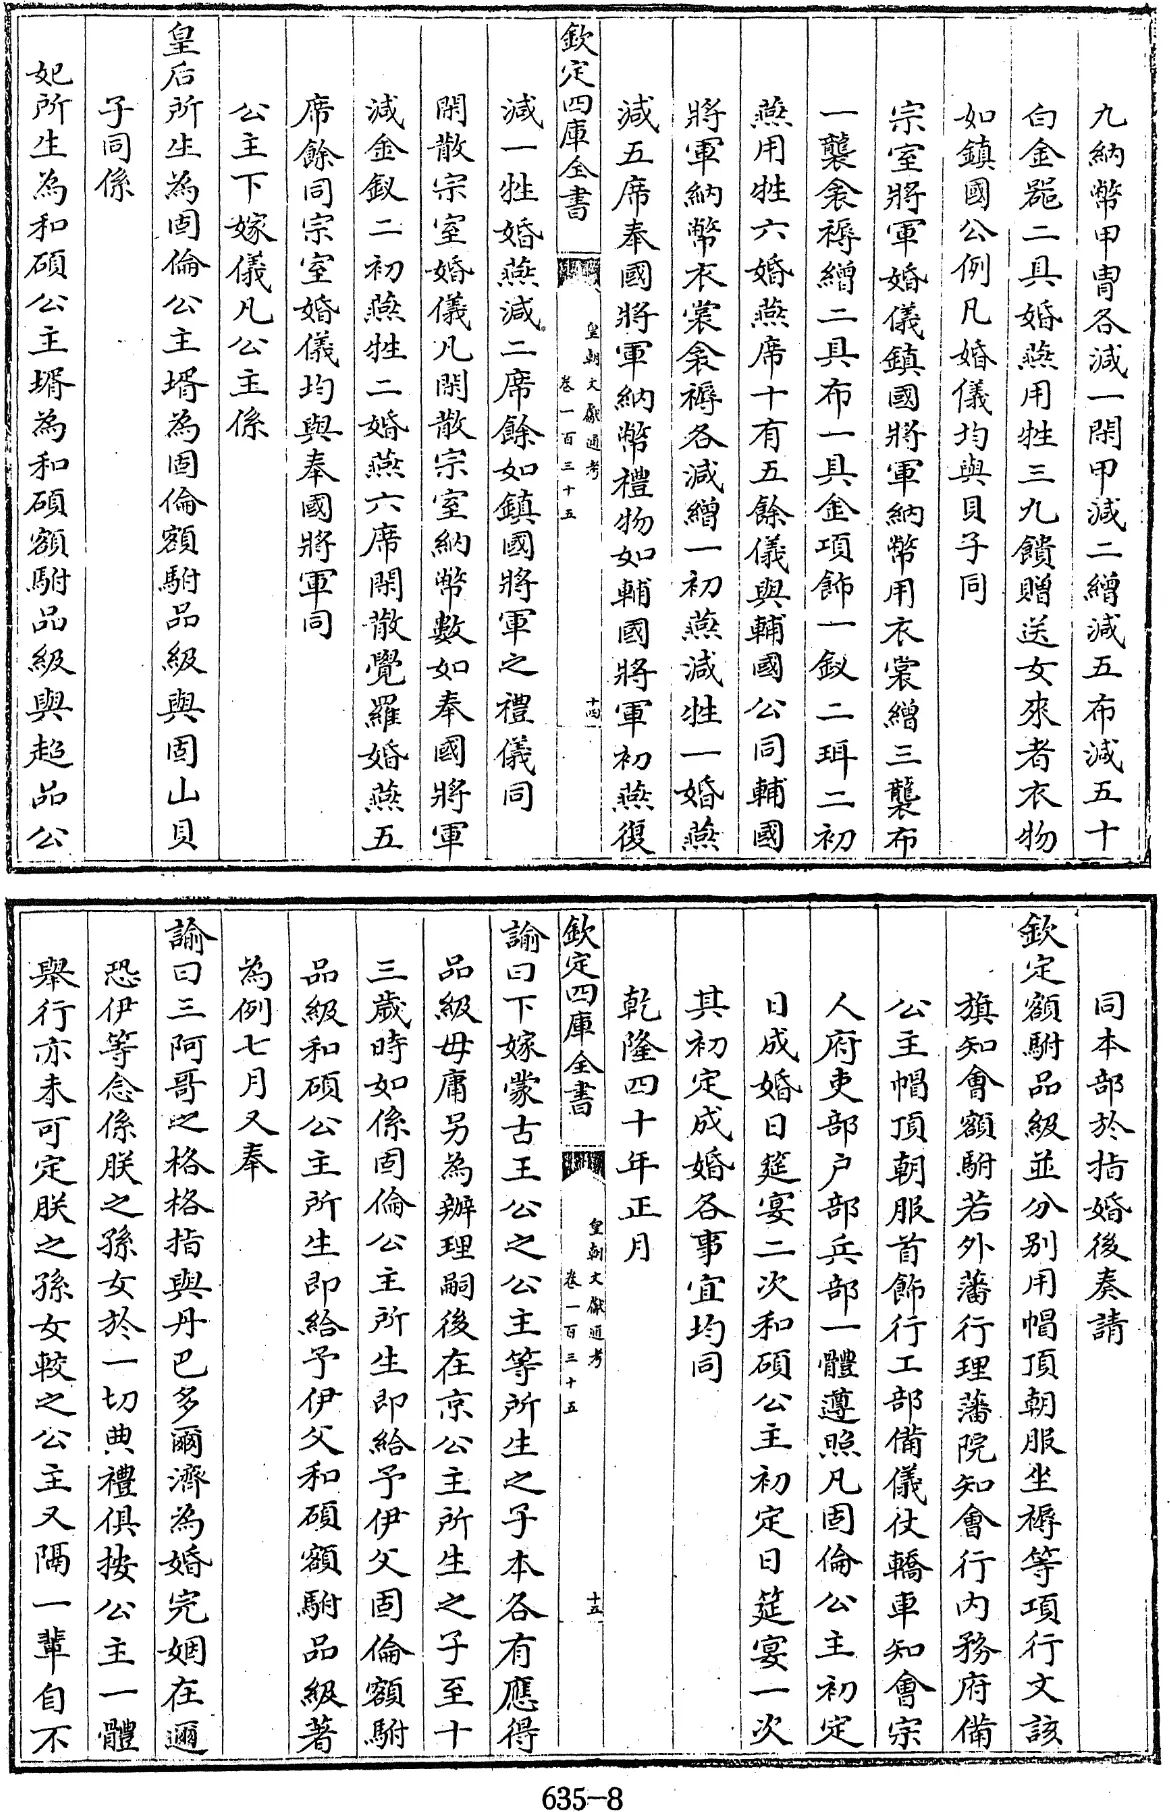 九納幣甲冑各減一閑甲減二繒減五布減五十
白金器二具婚燕用牲三九饋贈送女來者衣物
如鎮國公例凡婚儀均與貝子同
宗室將軍婚儀鎮國將軍納幣用衣裳繒三襲布
一襲衾褥繒二具布一具金項飾一釵二珥二初
燕用牲六婚燕席十有五餘儀與輔國公同輔國
將軍納幣衣裳衾褥各減繒一初燕減牲一婚燕
減五席奉國將軍納幣禮物如輔國將軍初燕復
欽定四庫全書
皇朝文獻通考
卷一百三十五
十四
減一牲婚燕減二席餘如鎮國將軍之禮儀同
閑散宗室婚儀凡閑散宗室納幣數如奉國將軍
減金釵二初燕牲二婚燕六席閑散覺羅婚燕五
席餘同宗室婚儀均與奉國將軍同
公主下嫁儀凡公主係
皇后所生為固倫公主壻為固倫額駙品級與固山貝
子同係
妃所生為和碩公主壻為和碩額駙品級與超品公
同本部於指婚後奏請
欽定額駙品級並分別用帽頂朝服坐褥等項行文該
旗知會額駙若外藩行理藩院知會行內務府備
公主帽頂朝服首飾行工部備儀仗轎車知會宗
人府吏部戶部兵部一體遵照凡固倫公主初定
日成婚日筵宴二次和碩公主初定日筵宴一次
其初定成婚各事宜均同
乾隆四十年正月
欽定四庫全書
皇朝文獻通考
卷一百三十五
十五
諭曰下嫁蒙古王公之公主等所生之子本各有應得
品級毋庸另為辦理嗣後在京公主所生之子至十
三歲時如係固倫公主所生即給予伊父固倫額駙
品級和碩公主所生即給予伊父和碩額駙品級著
為例七月又奉
諭曰三阿哥之格格指與丹巴多爾濟為婚完姻在邇
恐伊等念係朕之孫女於一切典禮俱按公主一體
舉行亦未可定朕之孫女較之公主又隔一輩自不
635-8